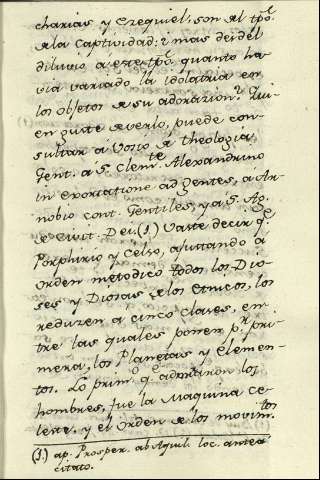 charias, y Ezequiel; son al tpõ.
de la Captividad; i mas desdel
diluvio a este tpõ. quanto ha-
via variado la idolatria en
los objetos de su adoracion? Qui-
en guste deverlo, puede con-
sultar a Vosio de Theologia
Gent. a S. Clem.te Alexandrino
in exortatione ad gentes, a Ar-
nobio cont. Gentiles, y a S. Ag.
de Civit. Dei. (1.) Vaste decir q.e
Porphirio y Celso, ajustando a
orden metodico todos los Dio-
ses y Diosas de los Etnicos, los
reduzen a cinco clases, en-
tre las quales ponen p.r pri-
mera, los Planetas y Elemen-
tos. Lo prim.o q.e adoraron los
hombres, fue la Maquina ce-
leste, y el orden de los movim.tos
(1.) ap. Prosper. ab Aquil. loc. antea
citato.